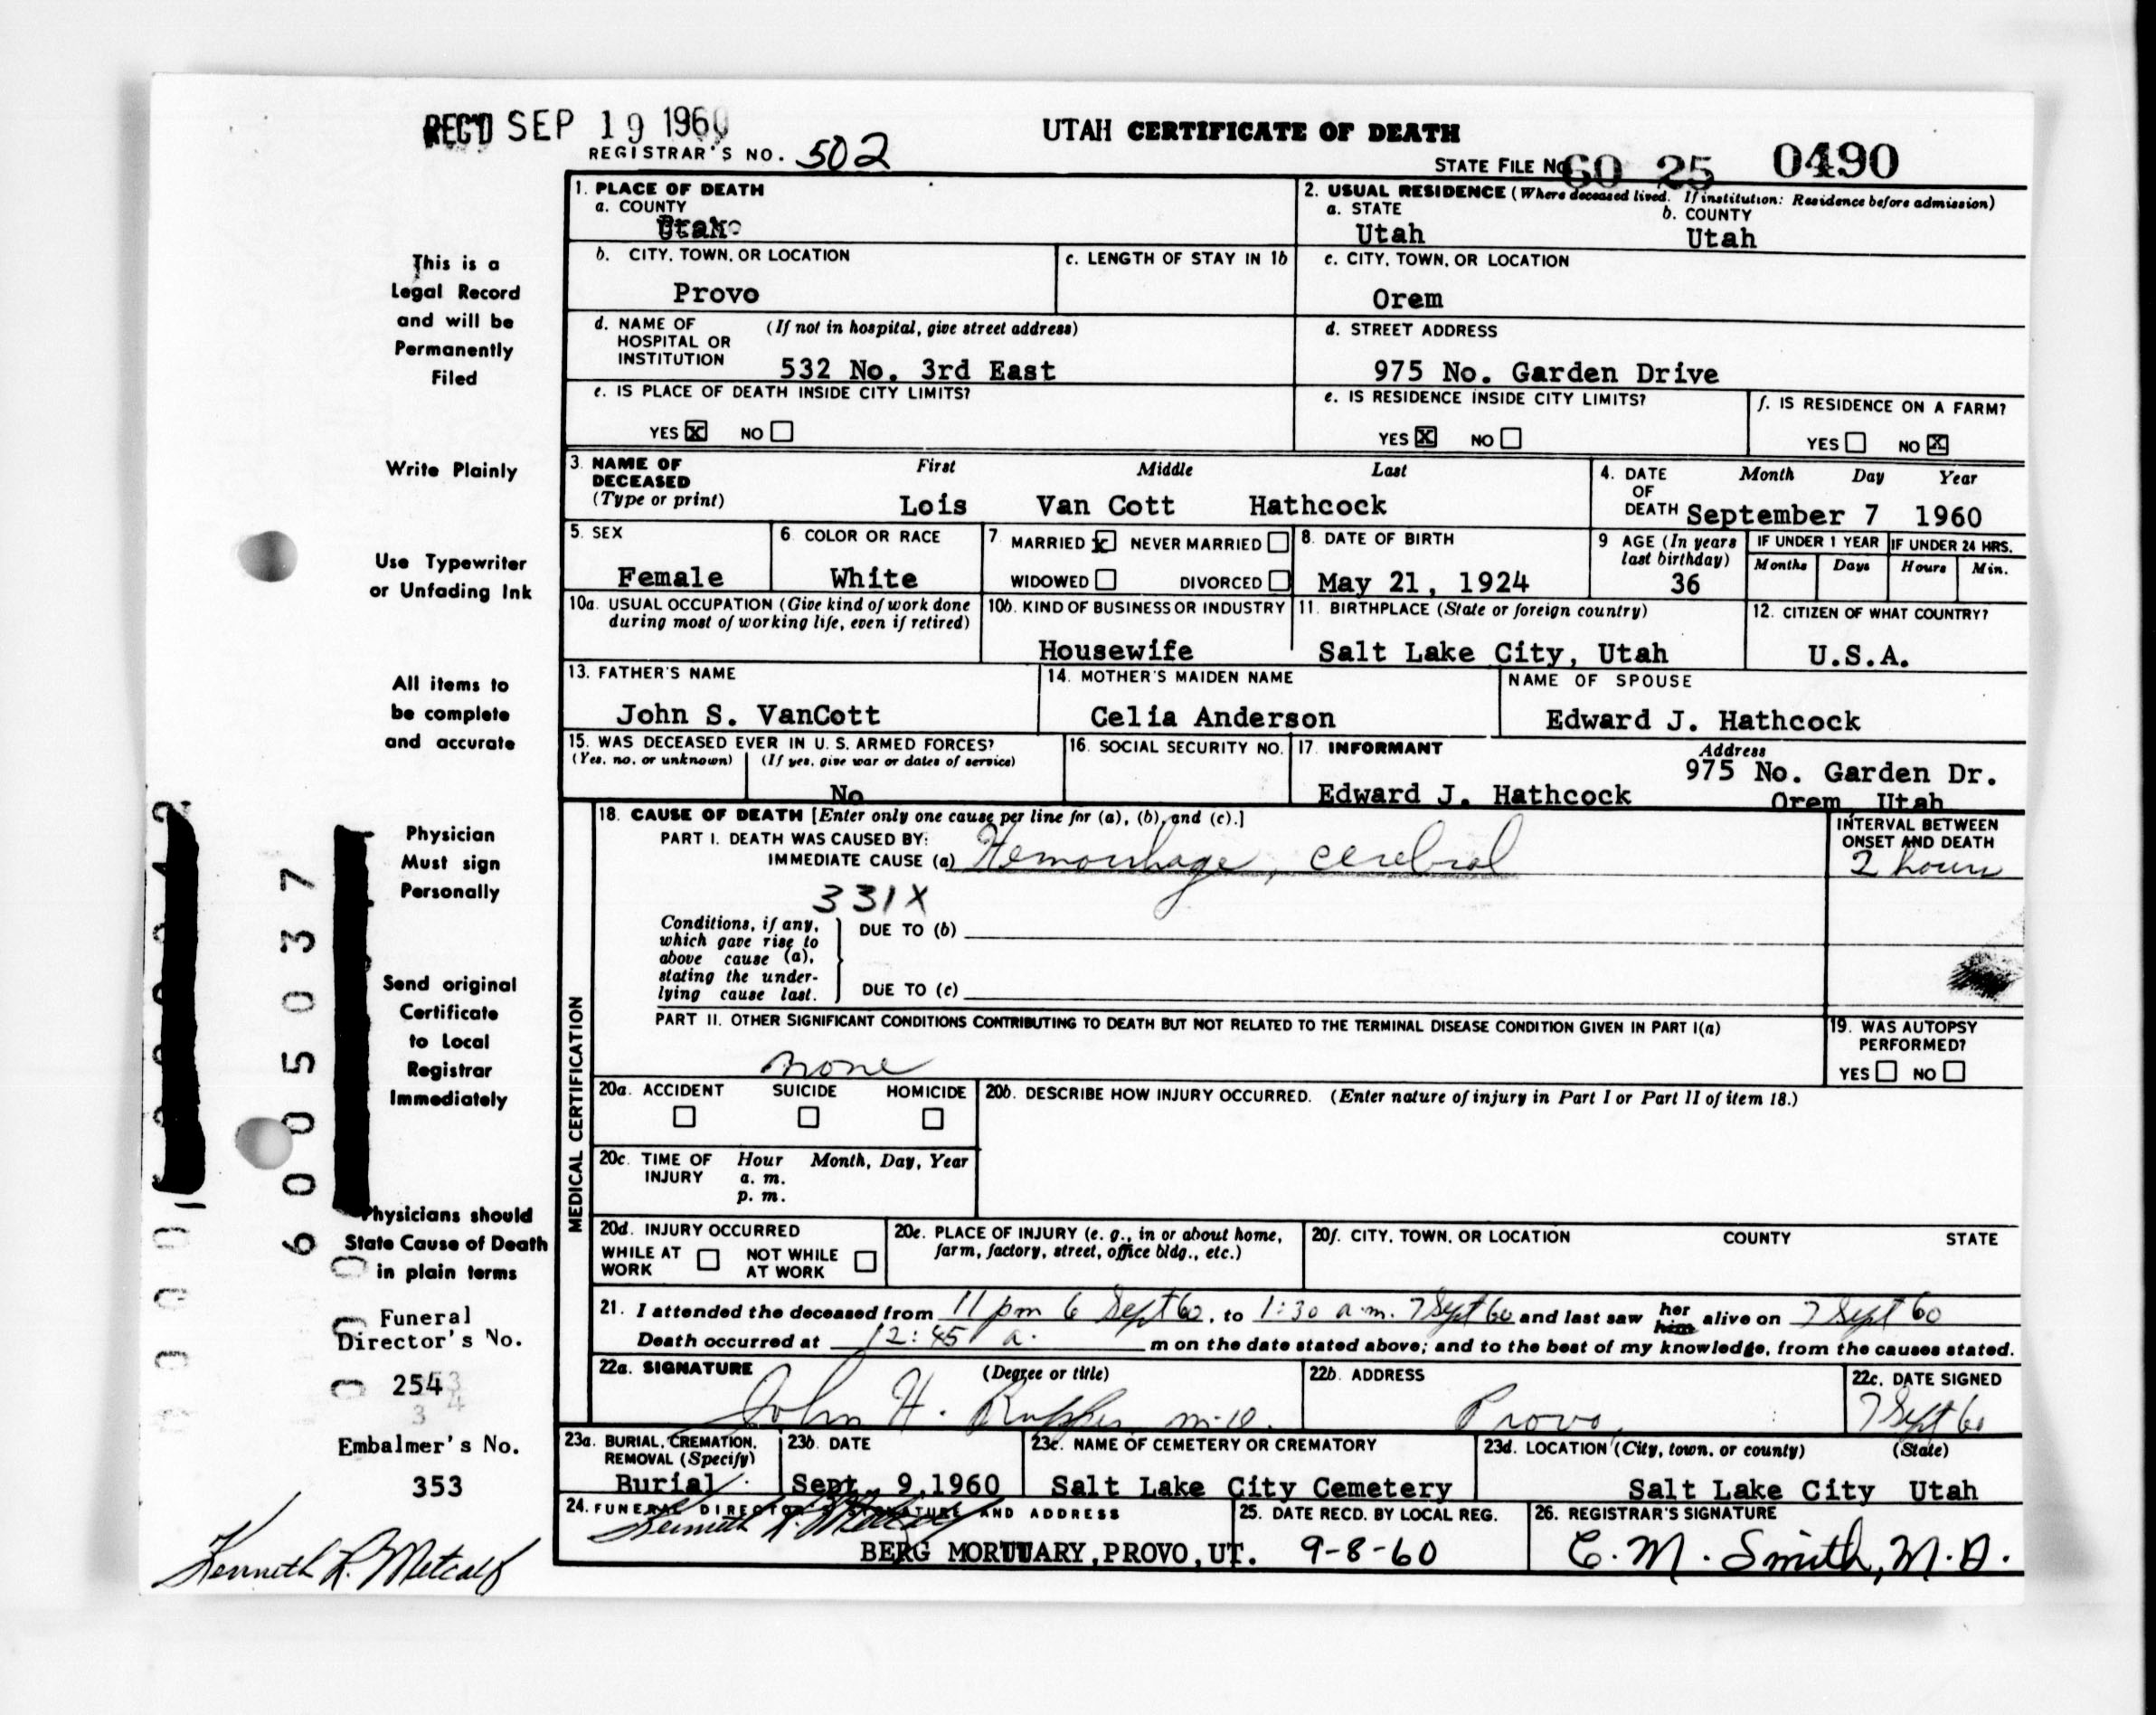 REC'D SEP 19 1960
UTAH CERTIFICATE OF DEATH
REGISTRAR'S NO. 502
STATE FILE No. 60 25 0490
This is a
Legal Record
and will be
Permanently
Filed
Write Plainly
Use Typewriter
or Unfading Ink
All items to
be complete
and accurate
Physician
Must sign
Personally
Send original
Certificate
to Local
Registrar
Immediately
Physicians should
State Cause of Death
in plain terms
Funeral
Director's No.
254
Embalmer's No.
353
Kenneth R. Metcalf
6005037
1. PLACE OF DEATH
a. COUNTY
Utah
2. USUAL RESIDENCE (Where deceased lived. If institution: Residence before admission)
a. STATE b. COUNTY
Utah Utah
b. CITY, TOWN, OR LOCATION
Provo
c. LENGTH OF STAY IN 1b
c. CITY, TOWN, OR LOCATION
Orem
d. NAME OF (If not in hospital, give street address)
HOSPITAL OR
INSTITUTION
532 No. 3rd East
d. STREET ADDRESS
975 No. Garden Drive
e. IS PLACE OF DEATH INSIDE CITY LIMITS?
YES X NO
e. IS RESIDENCE INSIDE CITY LIMITS?
YES X NO
f. IS RESIDENCE ON A FARM?
YES NO X
3. NAME OF First Middle Last
DECEASED
(Type or print)
Lois Van Cott Hathcock
4. DATE Month Day Year
OF
DEATH September 7 1960
5. SEX
Female
6. COLOR OR RACE
White
7. MARRIED X NEVER MARRIED
WIDOWED DIVORCED
8. DATE OF BIRTH
May 21, 1924
9 AGE (In years
last birthday)
36
IF UNDER 1 YEAR IF UNDER 24 HRS.
Months Days Hours Min.
10a. USUAL OCCUPATION (Give kind of work done
during most of working life, even if retired)
10b. KIND OF BUSINESS OR INDUSTRY
Housewife
11. BIRTHPLACE (State or foreign country)
Salt Lake City, Utah
12. CITIZEN OF WHAT COUNTRY?
U.S.A.
13. FATHER'S NAME
John S. VanCott
14. MOTHER'S MAIDEN NAME
Celia Anderson
NAME OF SPOUSE
Edward J. Hathcock
15. WAS DECEASED EVER IN U. S. ARMED FORCES?
(Yes, no, or unknown) (If yes, give war or dates of service)
No
16. SOCIAL SECURITY NO.
17. INFORMANT Address
Edward J. Hathcock
975 No. Garden Dr.
Orem, Utah
MEDICAL CERTIFICATION
18. CAUSE OF DEATH [Enter only one cause per line for (a), (b), and (c).]
PART I. DEATH WAS CAUSED BY:
IMMEDIATE CAUSE (a) Hemorrhage, cerebral
INTERVAL BETWEEN
ONSET AND DEATH
2 hours
331X
Conditions, if any,
which gave rise to
above cause (a),
stating the under-
lying cause last.
DUE TO (b)
DUE TO (c)
PART II. OTHER SIGNIFICANT CONDITIONS CONTRIBUTING TO DEATH BUT NOT RELATED TO THE TERMINAL DISEASE CONDITION GIVEN IN PART I(a)
none
19. WAS AUTOPSY
PERFORMED?
YES NO
20a. ACCIDENT SUICIDE HOMICIDE
20b. DESCRIBE HOW INJURY OCCURRED. (Enter nature of injury in Part I or Part II of item 18.)
20c. TIME OF Hour Month, Day, Year
INJURY a. m.
p. m.
20d. INJURY OCCURRED
WHILE AT NOT WHILE
WORK AT WORK
20e. PLACE OF INJURY (e. g., in or about home,
farm, factory, street, office bldg., etc.)
20f. CITY, TOWN, OR LOCATION COUNTY STATE
21. I attended the deceased from 11 pm 6 Sept 60, to 1:30 a.m. 7 Sept 60 and last saw her him alive on 7 Sept 60
Death occurred at 12:45 a. m on the date stated above; and to the best of my knowledge, from the causes stated.
22a. SIGNATURE (Degree or title)
John H. M.D.
22b. ADDRESS
Provo
22c. DATE SIGNED
7 Sept 60
23a. BURIAL, CREMATION,
REMOVAL (Specify)
Burial
23b. DATE
Sept. 9, 1960
23c. NAME OF CEMETERY OR CREMATORY
Salt Lake City Cemetery
23d. LOCATION (City, town, or county) (State)
Salt Lake City Utah
24. FUNERAL DIRECTOR'S SIGNATURE AND ADDRESS
Kenneth R. Metcalf
BERG MORTUARY, PROVO, UT.
25. DATE RECD. BY LOCAL REG.
9-8-60
26. REGISTRAR'S SIGNATURE
C. M. Smith, M.D.